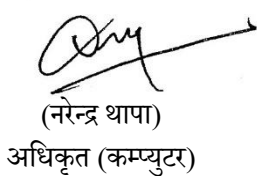 (नरेन्द्र थापा)
अधिकृत (कम्प्युटर)